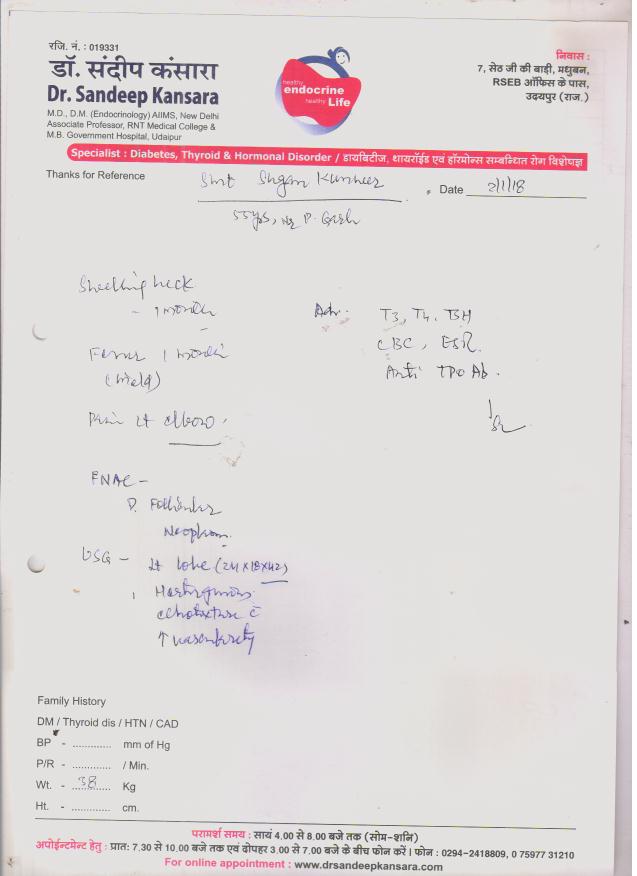 रजि. नं. : 019331
डॉ. संदीप कंसारा
Dr. Sandeep Kansara
M.D., D.M. (Endocrinology) AIIMS, New Delhi
Associate Professor, RNT Medical College &
M.B. Government Hospital, Udaipur
healthy
endocrine
healthy Life
निवास :
7, सेठ जी की बाड़ी, मधुबन,
RSEB ऑफिस के पास,
उदयपुर (राज.)
Specialist : Diabetes, Thyroid & Hormonal Disorder / डायबिटीज, थायरॉईड एवं हॉरमोन्स सम्बन्धित रोग विशेषज्ञ
Thanks for Reference
Smt Kunwer
Date 2/1/18
55yrs,
Swelling neck
- 1 month
Fever 1 month
(mild)
Pain Lt elbow.
Adv. T3, T4, TSH
CBC, ESR.
Anti TPO Ab.
FNAC -
Neoplasm.
USG - Lt lobe (24x18x42)
echotexture c̄
↑ vascularity
Family History
DM / Thyroid dis / HTN / CAD
BP - ............. mm of Hg
P/R - ............. / Min.
Wt. - 38 Kg
Ht. - ............. cm.
परामर्श समय : सायं 4.00 से 8.00 बजे तक (सोम-शनि)
अपोईन्टमेन्ट हेतु : प्रात: 7.30 से 10.00 बजे तक एवं दोपहर 3.00 से 7.00 बजे के बीच फोन करें । फोन : 0294-2418809, 0 75977 31210
For online appointment : www.drsandeepkansara.com